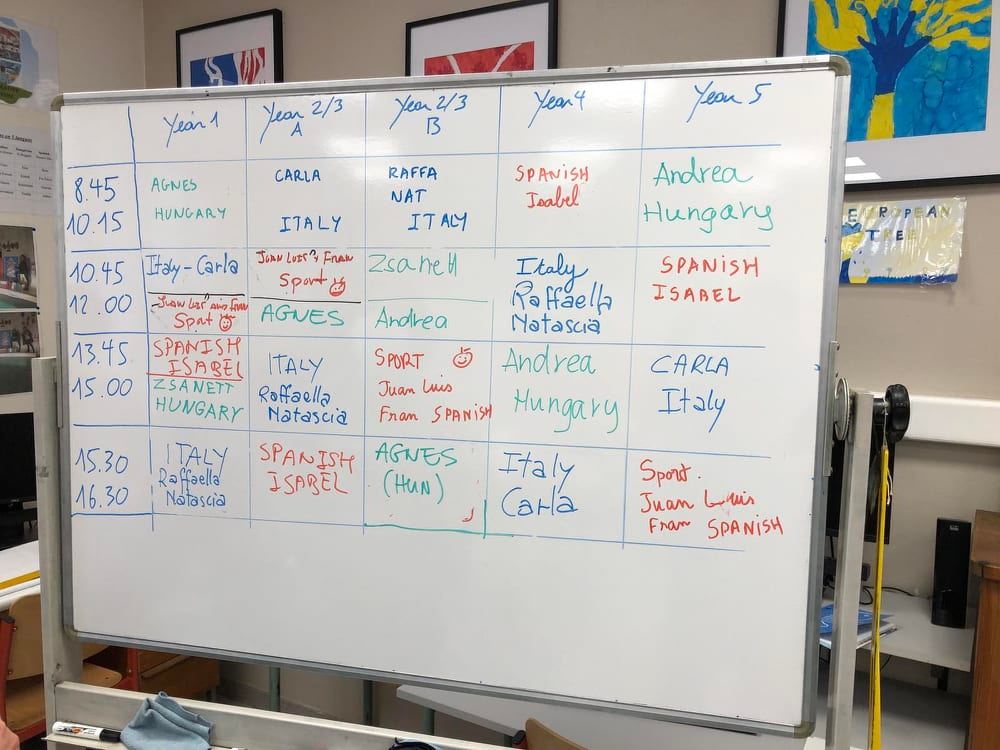 Year 1
Year 2/3
A
Year 2/3
B
Year 4
Year 5
8.45
10.15
AGNES
HUNGARY
CARLA
ITALY
RAFFA
NAT
ITALY
SPANISH
Isabel
Andrea
Hungary
10.45
12.00
Italy - Carla
Sport
Sport
AGNES
Zsanett
Andrea
Italy
Raffaella
Natascia
SPANISH
ISABEL
13.45
15.00
SPANISH
ISABEL
ZSANETT
HUNGARY
ITALY
Raffaella
Natascia
SPORT
Juan Luis
Fran SPANISH
Andrea
Hungary
CARLA
Italy
15.30
16.30
ITALY
Raffaella
Natascia
SPANISH
ISABEL
AGNES
(HUN)
Italy
Carla
Sport.
Juan Luis
Fran SPANISH
EUROPEAN
TREE